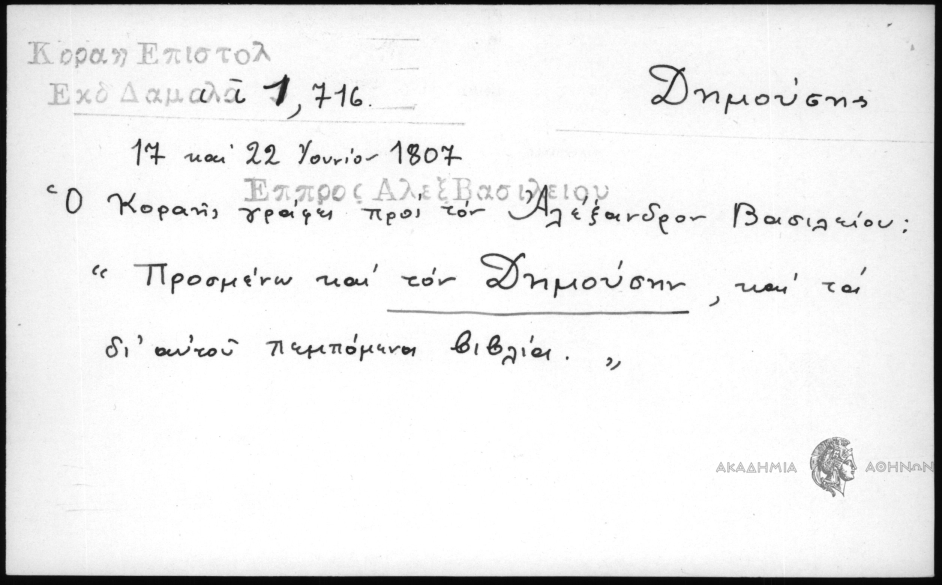 Κοραη Επιστολ
Εκδ Δαμαλα ά 1, 716.
Δημούσης
17 καί 22 Ἰουνίου 1807
Επ προς Αλεξ Βασιλειου
Ὁ Κοραῆς γράφει πρός τόν Ἀλέξανδρον Βασιλείου:
“ Προσμένω καί τόν Δημούσην, καί τά
δι' αὐτοῦ πεμπόμενα βιβλία. „
ΑΚΑΔΗΜΙΑ ΑΘΗΝΩΝ